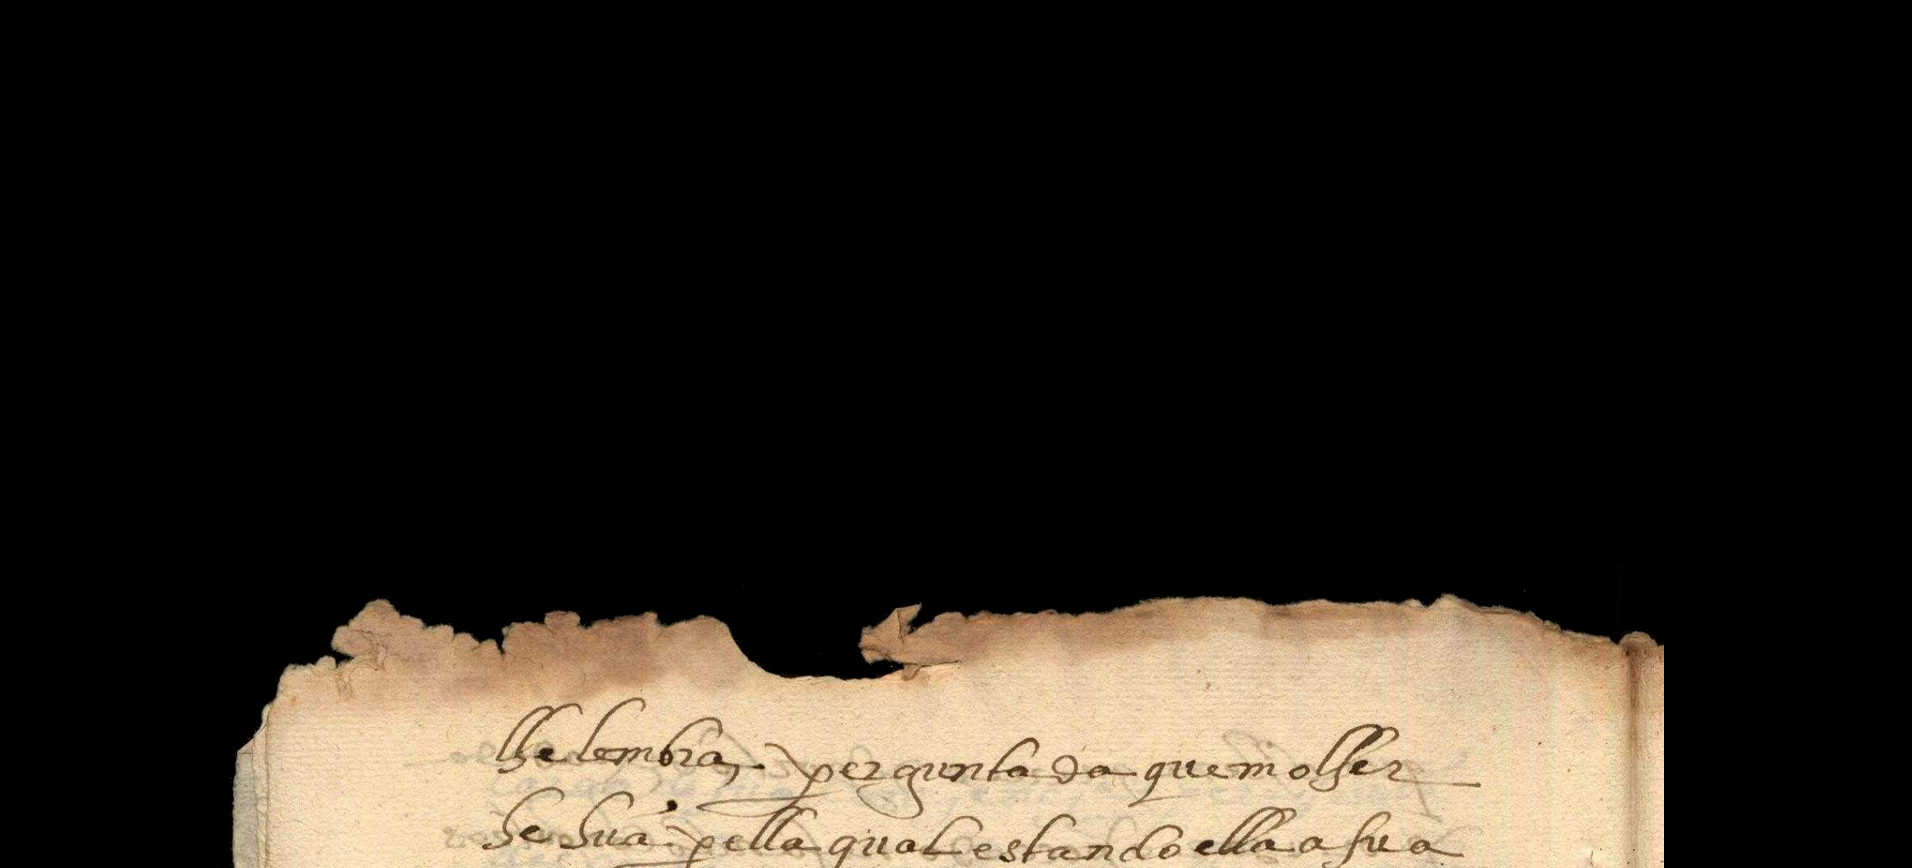 lhe lembra, perguntada que molher
he hua pella qual estando ella a sua